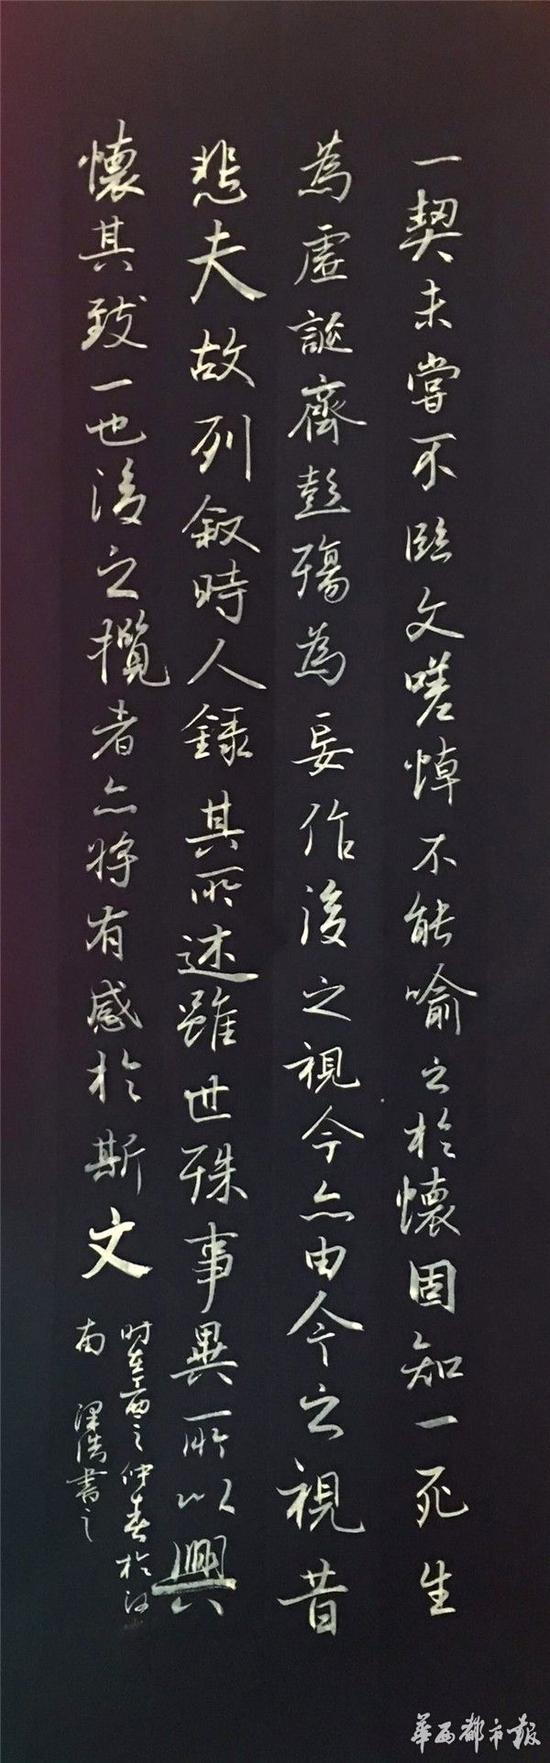 一契未嘗不臨文嗟悼不能喻之於懷固知一死生
為虛誕齊彭殤為妄作後之視今亦由今之視昔
悲夫故列叙時人錄其所述雖世殊事異所以興
懷其致一也後之攬者亦將有感於斯文
时在丁酉之仲春於河
南 梁浩書之
華西都市報